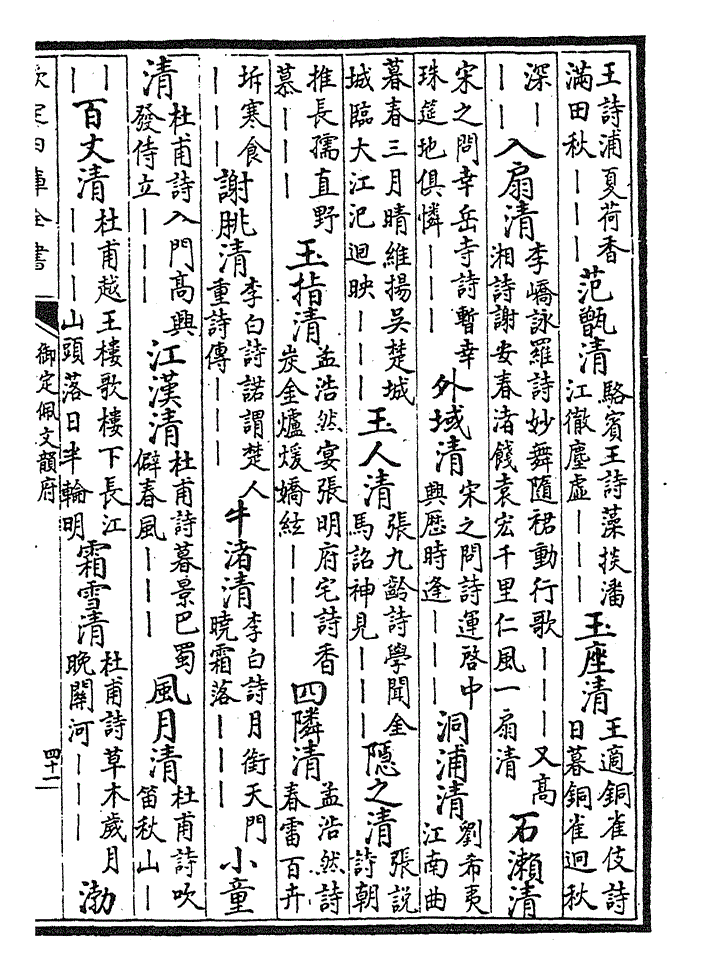 王詩浦夏荷香滿田秋｜｜｜范甑清駱賓王詩藻掞潘江徹塵虛｜｜｜玉座清王適銅雀伎詩日暮銅雀迥秋
深｜｜｜入扇清李嶠詠羅詩妙舞隨裙動行歌｜｜｜又高湘詩謝安春渚餞袁宏千里仁風一扇清石瀨清
宋之問幸岳寺詩暫幸珠筵地俱憐｜｜｜外域清宋之問詩運啓中興歷時逢｜｜｜洞浦清劉希夷江南曲
暮春三月晴維揚吳楚城城臨大江汜迴映｜｜｜玉人清張九齡詩學聞金馬詔神見｜｜｜隱之清張説詩朝
推長孺直野慕｜｜｜玉指清孟浩然宴張明府宅詩香炭金爐煖嬌絃｜｜｜四隣清孟浩然詩春雷百卉
坼寒食｜｜｜謝脁清李白詩諾謂楚人重詩傳｜｜｜牛渚清李白詩月銜天門曉霜落｜｜｜小童
清杜甫詩入門高興發侍立｜｜｜江漢清杜甫詩暮景巴蜀僻春風｜｜｜風月清杜甫詩吹笛秋山｜
｜｜百丈清杜甫越王樓歌樓下長江｜｜｜山頭落日半輪明霜雪清杜甫詩草木歲月晚關河｜｜｜渤
欽定四庫全書
御定佩文韻府
四十二